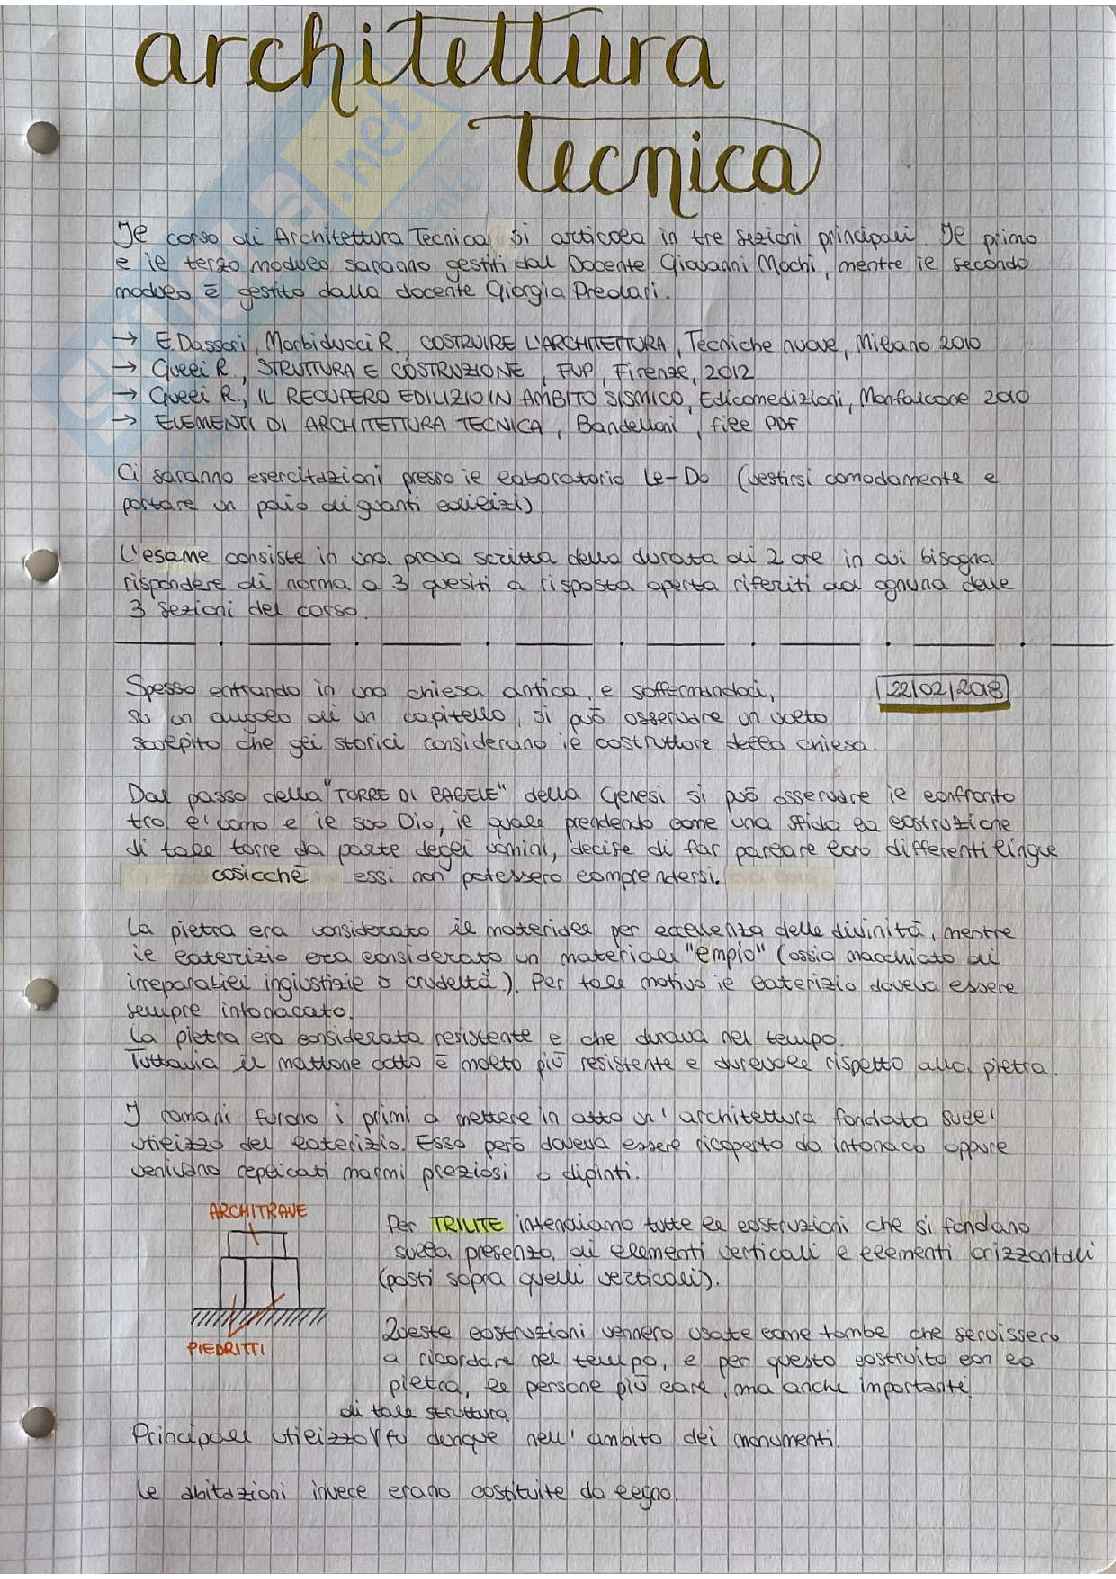 architettura
tecnica
Il corso di Architettura Tecnica si articola in tre sezioni principali. Il primo
e il terzo modulo saranno gestiti dal Docente Giovanni Mochi, mentre il secondo
modulo è gestito dalla docente Giorgia Predari.
→ E.Dassori, Morbiducci R., COSTRUIRE L'ARCHITETTURA, Tecniche nuove, Milano 2010
→ Gulli R., STRUTTURA E COSTRUZIONE, FUP, Firenze, 2012
→ Gulli R., IL RECUPERO EDILIZIO IN AMBITO SISMICO, Edicomedizioni, Monfalcone 2010
→ ELEMENTI DI ARCHITETTURA TECNICA, Bandelloni, file PDF
Ci saranno esercitazioni presso il laboratorio Le-Do (vestirsi comodamente e
portare un paio di guanti edilizi)
L'esame consiste in una prova scritta della durata di 2 ore in cui bisogna
rispondere di norma a 3 quesiti a risposta aperta riferiti ad ognuna delle
3 sezioni del corso.
Spesso entrando in una chiesa antica, e soffermandoci,
22/02/2018
su un angolo di un capitello, si può osservare un volto
scolpito che gli storici considerano il costruttore della chiesa.
Dal passo della "TORRE DI BABELE" della Genesi si può osservare il confronto
tra l'uomo e il suo Dio, il quale prendendo come una sfida la costruzione
di tale torre da parte degli uomini, decise di far parlare loro differenti lingue
cosicchè essi non potessero comprendersi.
La pietra era considerato il materiale per eccellenza delle divinità, mentre
il laterizio era considerato un materiale "empio" (ossia macchiato di
irreparabili ingiustizie o crudeltà). Per tale motivo il laterizio doveva essere
sempre intonacato.
La pietra era considerata resistente e che durava nel tempo.
Tuttavia il mattone cotto è molto più resistente e durevole rispetto alla pietra.
I romani furono i primi a mettere in atto un'architettura fondata sull'
utilizzo del laterizio. Esso però doveva essere ricoperto da intonaco oppure
venivano replicati marmi preziosi o dipinti.
ARCHITRAVE
PIEDRITTI
Per TRILITE intendiamo tutte le costruzioni che si fondano
sulla presenza di elementi verticali e elementi orizzontali
(posti sopra quelli verticali).
Queste costruzioni vennero usate come tombe che servissero
a ricordare nel tempo, e per questo costruito con la
pietra, le persone più care, ma anche importante.
di tale struttura
Principale utilizzo fu dunque nell'ambito dei monumenti.
Le abitazioni invece erano costituite da legno.